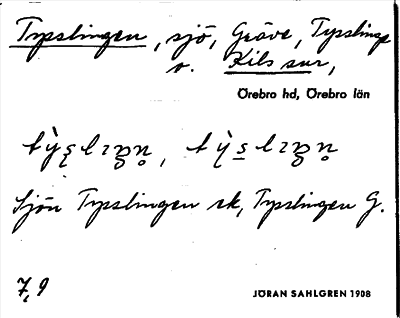 Tysslingen, sjö, Gräve, Tysslinge
o. Kils snr,
Örebro hd, Örebro län
Sjön Tysslingen rk, Tysslingen G.
7,9
JÖRAN SAHLGREN 1908